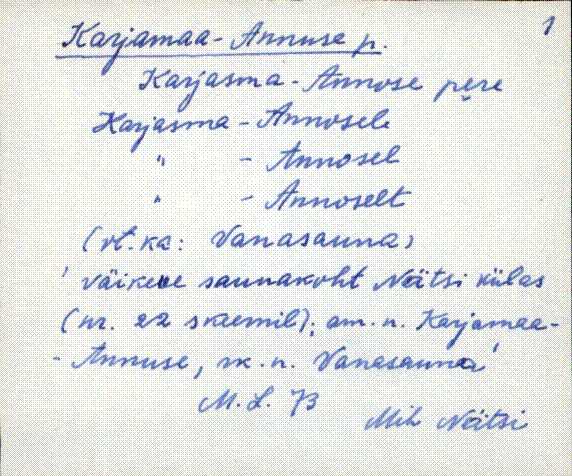 1
Karjamaa-Annuse p.
Karjasma-Annose pere
Karjasma-Annosele
" - Annosel
" - Annoselt
(vt. ka: Vanasauna)
' väikene saunakoht Nätsi külas
(nr. 22 skeemil); am. n. Karjamaa-
-Annuse, rk. n. Vanasauna'
M. L. 73
Mih Nätsi